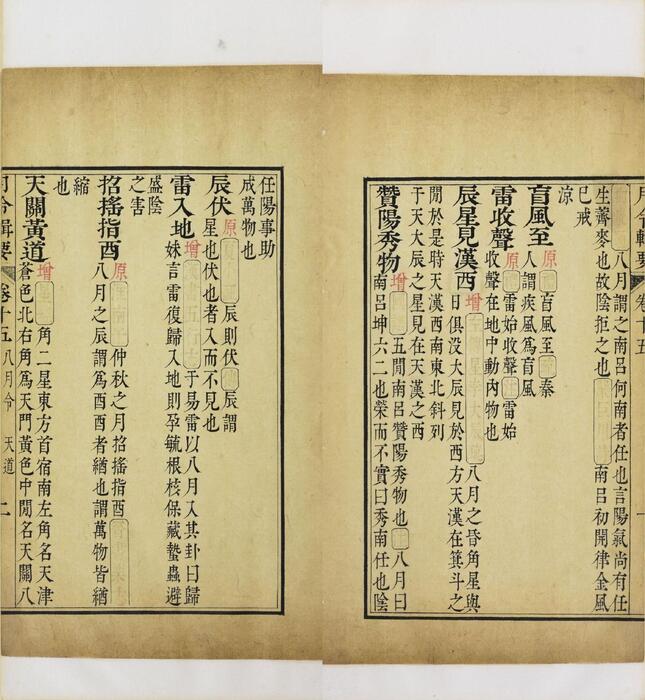 月令輯要 卷十五 一
八月謂之南呂何南者任也言陽氣尚有任
生薺麥也故陰拒之也 南呂初開律金風
巳戒
涼
盲風至 原 盲風至 秦
人謂疾風爲盲風
雷收聲 原 雷始收聲 雷始
收聲在地中動內物也
辰星見漢西 增 八月之昏角星與
日俱没大辰見於西方天漢在箕斗之
閒於是時天漢西南東北斜列
于天大辰之星見在天漢之西
贊陽秀物 增 五閒南呂贊陽秀物也 八月曰
南呂坤六二也榮而不實曰秀南任也陰
任陽事助
成萬物也
辰伏 原 辰則伏 辰謂
星也伏也者入而不見也
雷入地 增 于易雷以八月入其卦曰歸
妹言雷復歸入地則孕毓根核保藏蟄蟲避
盛陰
之害
招搖指酉 原 仲秋之月招搖指酉
八月之辰謂爲酉酉者緧也謂萬物皆緧
縮
也
天關黃道 增 角二星東方首宿南左角名天津
蒼色北右角爲天門黃色中閒名天關八
月令輯要 卷十五 八月令 天道 二